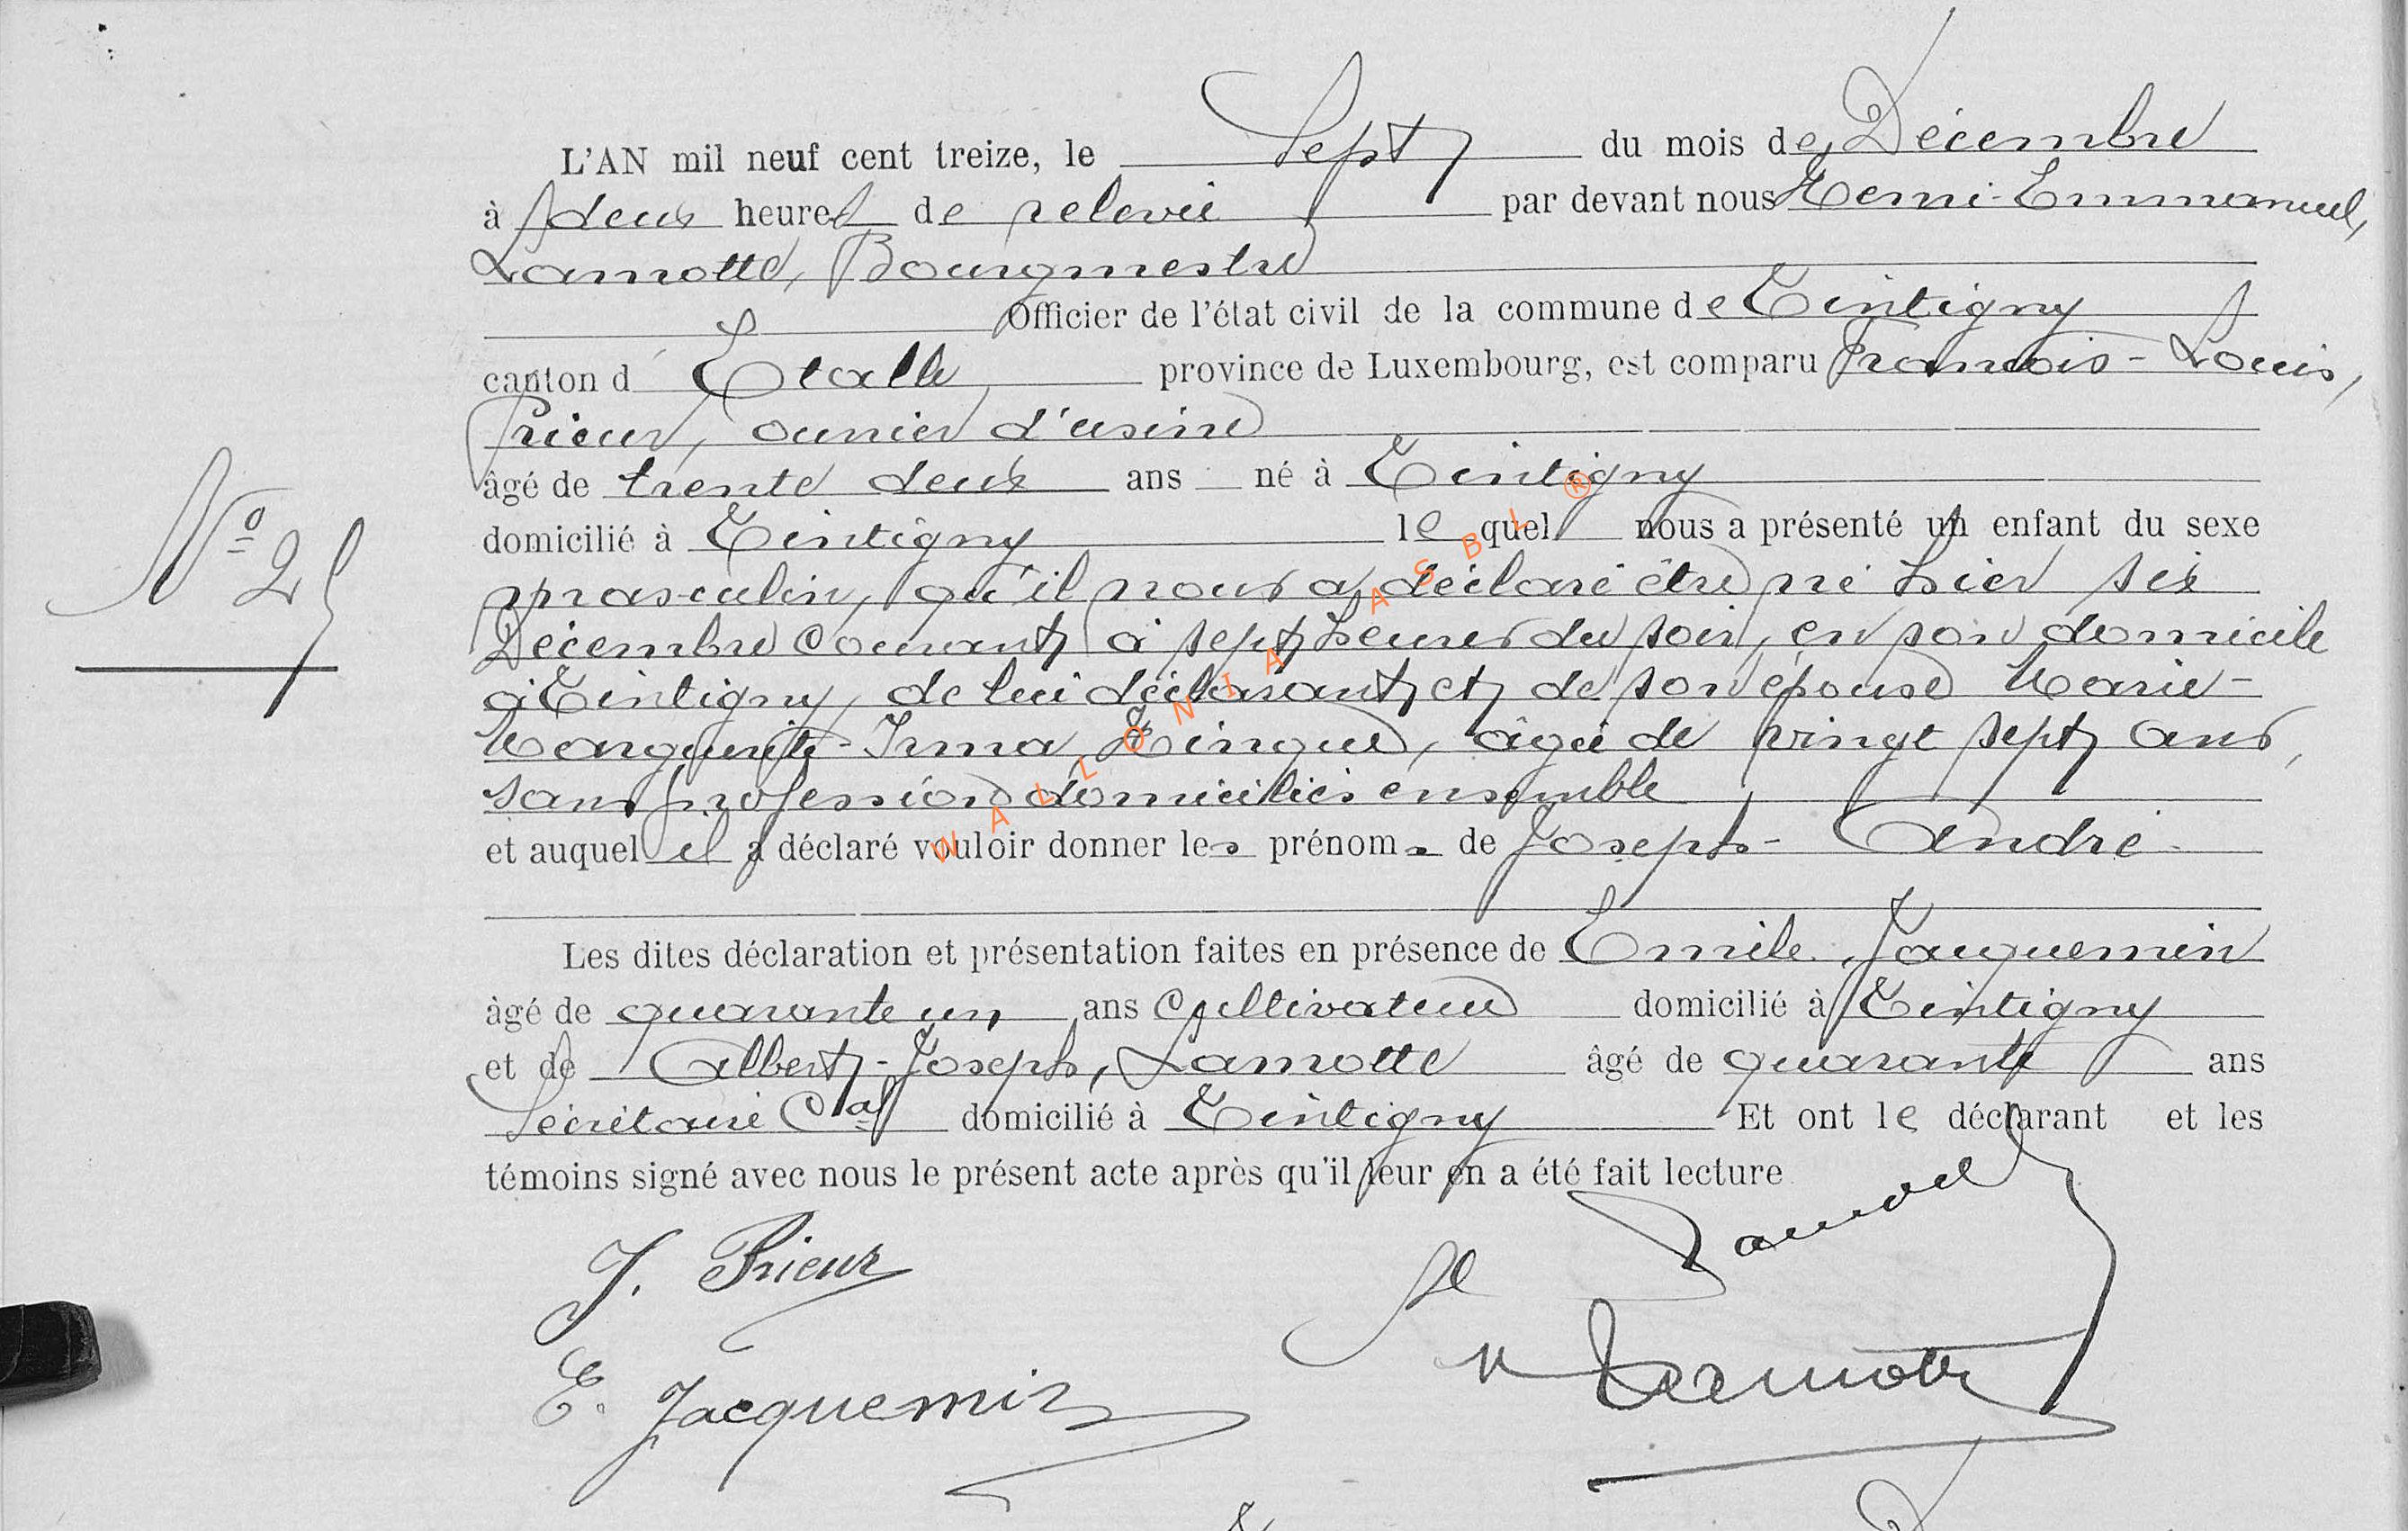 L'AN mil neuf cent treize, le Sept du mois de Décembre
à deux heures de relevée par devant nous Henri-Emmanuel,
Lamotte, Bourgmestre
Officier de l'état civil de la commune de Tintigny
canton d'Etalle province de Luxembourg, est comparu François-Louis,
Prieur, ouvrier d'usine
âgé de trente deux ans né à Tintigny
domicilié à Tintigny lequel nous a présenté un enfant du sexe
masculin, qu'il nous a déclaré être né hier six
Décembre courant à sept heures du soir, en son domicile
à Tintigny, de lui déclarant et de son épouse Marie-
Marguerite-Irma, âgée de vingt sept ans,
sans profession domiciliés ensemble
et auquel il a déclaré vouloir donner les prénoms de Joseph-André
Les dites déclaration et présentation faites en présence de Emile Jacquemin
âgé de quarante un ans Cultivateur domicilié à Tintigny
et de Albert-Joseph, Lamotte âgé de quarante ans
Sécrétaire Cal domicilié à Tintigny Et ont le déclarant et les
témoins signé avec nous le présent acte après qu'il leur en a été fait lecture
N° 25
J. Prieur
Lamotte
E. Jacquemin
Lamotte
WALLONIA ASBL ®